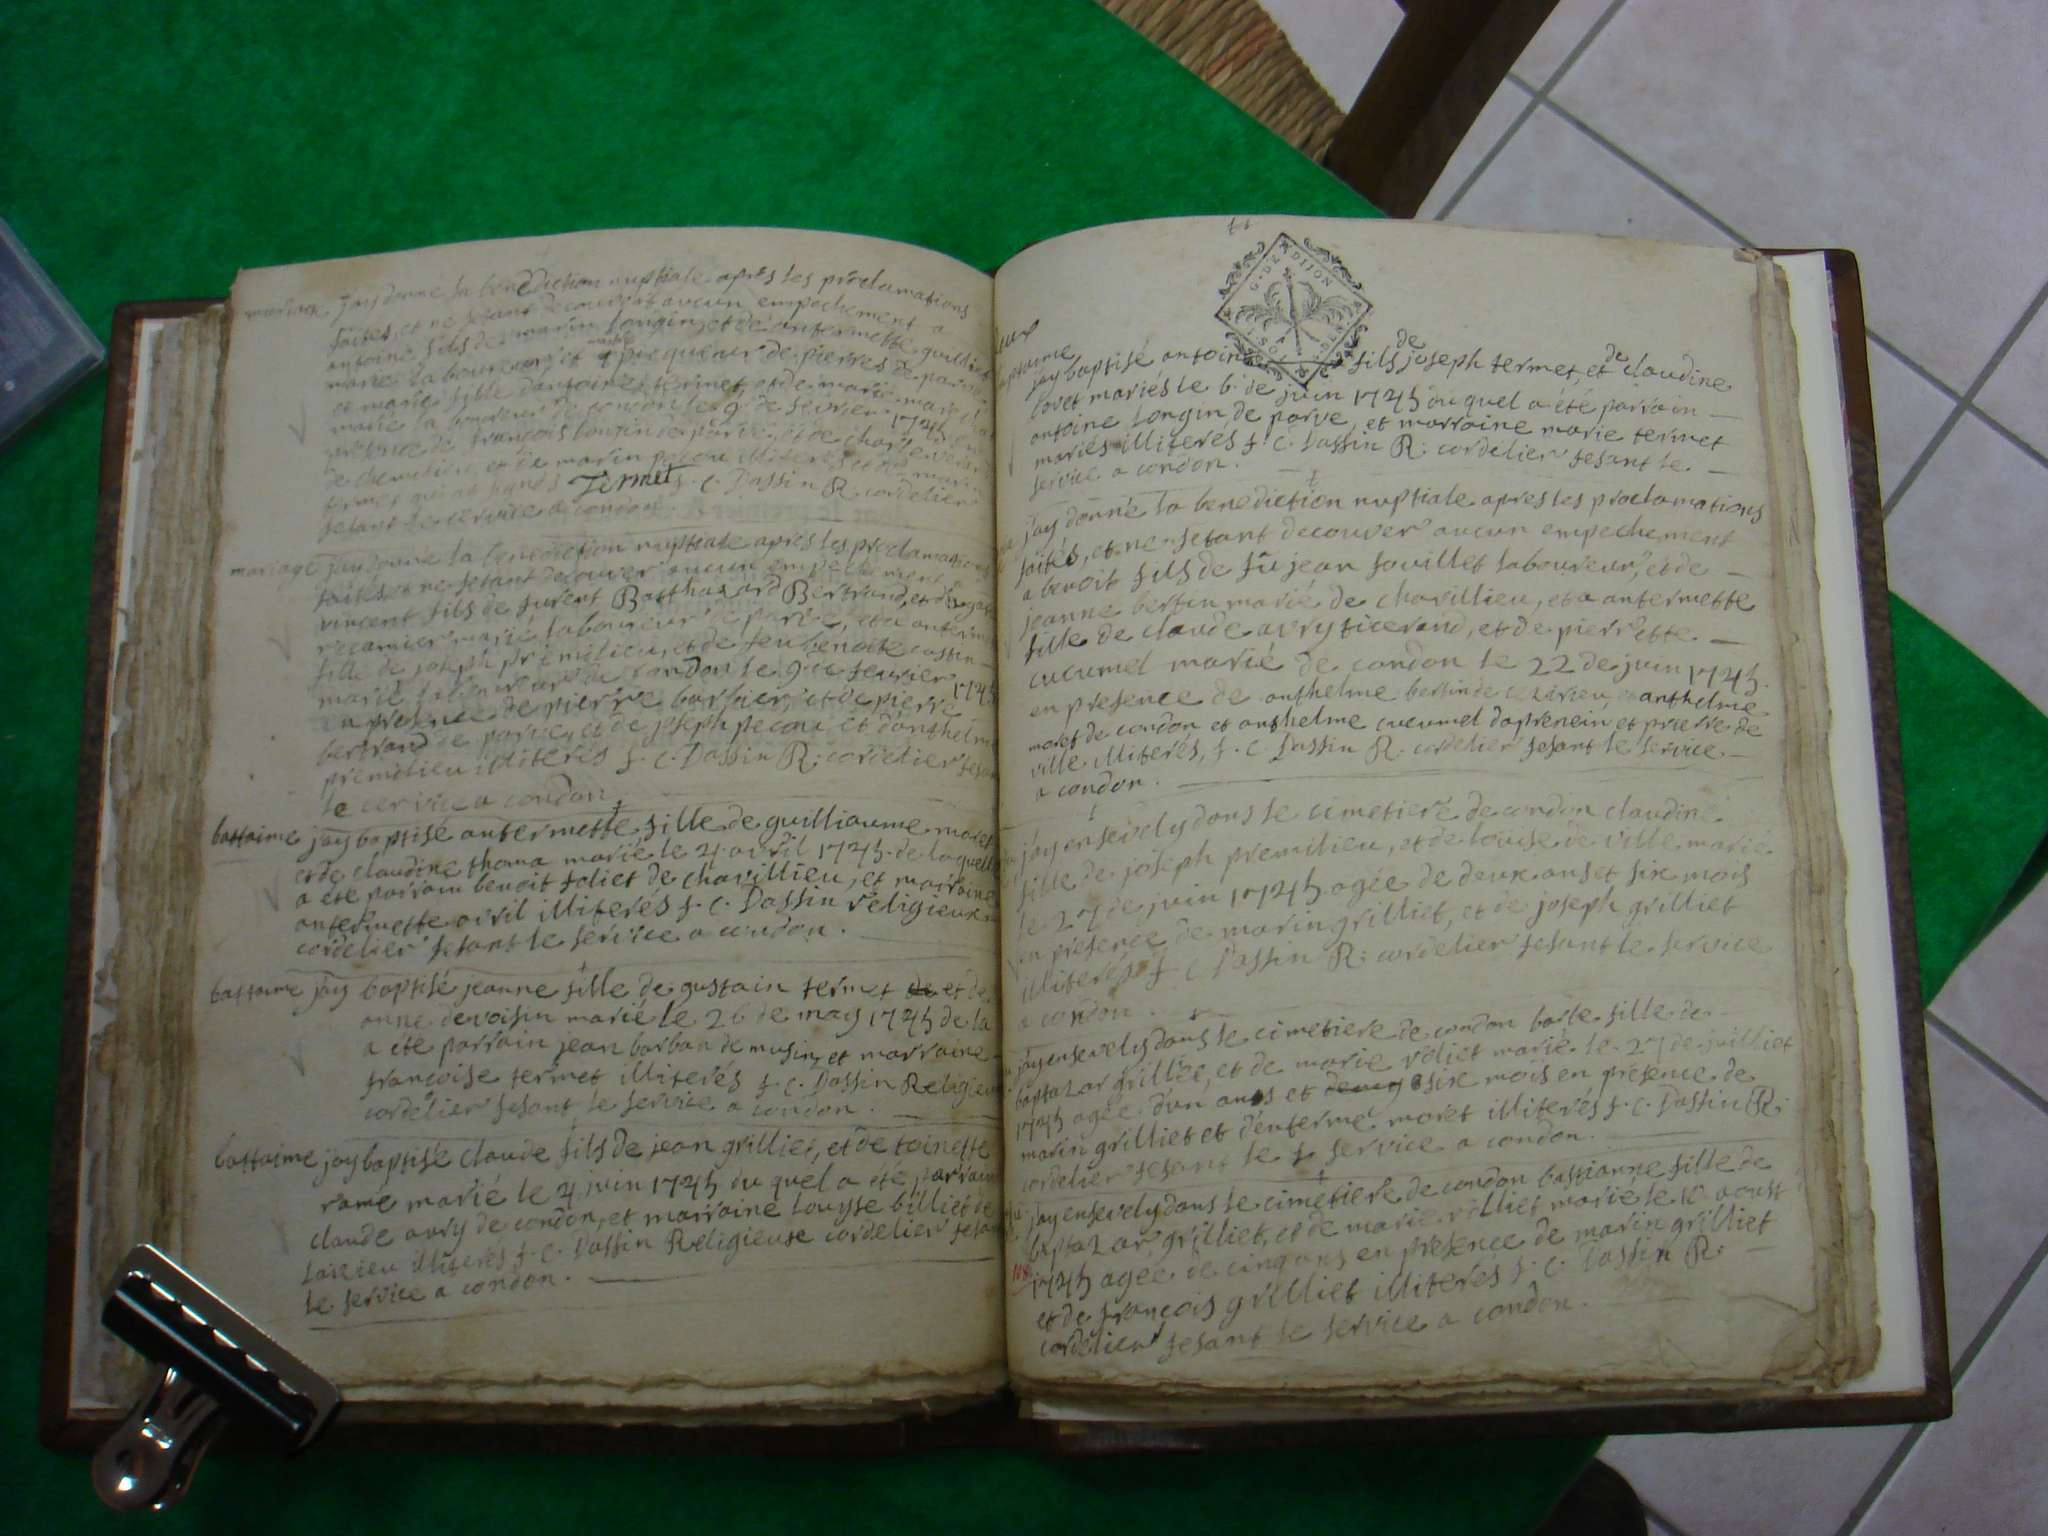 mariage jay donné la benediction nuptiale apres les proclamations
faites, et ne setant decouvert aucun empechement a
antoine fils de marin longin, et de antermette guilliet
marié laboureur et de pierres de parve
et marie fille dantoine termet, et de marie
marié laboureur de condon le 9 de fevrier 1745 en
presence de françois longin de parve, et de charle
de chemilieu, et de marin illiterés et de marin
termet qui at signés Termet f. C. Dassin R. cordelier
fesant le service a condon
mariage jay donné la benediction nuptiale apres les proclamations
faites et ne setant decouver aucun empechement a
vincent fils de furent Batthazard Bertrand, et dagat
recamier marié laboureur de parve, et a anterme
fille de joseph premilieu, et de feu benoite
marié laboureur de condon le 9 de feuvrier 1745
en presence de pierre barbier, et de pierre
bertrand de parve, et de joseph pecou et danthelme
premilieu illiterés f. C. Dassin R. cordelier fesan
le cervice a condon
battaime jay baptisé antermette fille de guilliaume moret
et de claudine thoma marié le 4 avril 1745 de laquell
a ete parrain benoit foliet de chavillieu, et marraine
antermette avril illiterés f. C. Dassin religieux
cordelier fesant le service a condon.
battaime jay baptisé jeanne fille de gustain termet de et de
anne devoisin marié le 26 de may 1745 de la
a ete parrain jean barbaa de musin, et marraine
françoise termet illiterés f. C. Dassin Religieux
cordelier fesant le service a condon.
battaime jay baptisé claude fils de jean grilliet, et de toinette
rame marié le 4 juin 1745 du quel a eté parrain
claude avry de condon, et marraine louyse billiet de
illiterés f. C. Dassin Religieuse cordelier fesan
le service a condon.
11
G. DE DIJON
jay baptisé antoine fils de joseph termet, et de claudine
bovet mariés le 6 de juin 1745 du quel a eté parrain
antoine Longin de parve, et marraine marie termet
mariés illiterés f. C. Dassin R. cordelier fesant le
service a condon.
jay donné la benediction nuptiale apres les proclamations
faités, et ne setant decouver aucun empechement
a benoit fils de fû jean fouillet laboureur, et de
jeanne bertin marié de chavillieu, et a antermette
fille de claude avry ticerand, et de pierrette
cucumel marié de condon le 22 de juin 1745.
en presence de anthelme bertin de anthelme
moret de condon et anthelme cucumel daprenein et prierre de
ville illiterés, f. C. Dassin R. cordelier fesant le service
a condon.
jay ensevely dans le cimetiere de condon claudine
fille de joseph premilieu, et de louise de ville marié
le 27 de juin 1745 agée de deux ans et six mois
en presence de marin grilliet, et de joseph grilliet
illiterés f. C. Dassin R. cordelier fesant le service
a condon.
jay ensevely dans le cimetiere de condon barbe fille de
baptazar grilliet, et de marie rolliet marié le 27 de juilliet
1745 agée dun ans et six mois en presence de
marin grilliet et denterme moret illiterés f. C. Dassin R.
cordelier fesant le service a condon.
jay ensevely dans le cimetiere de condon bastianne fille de
baptazar grilliet, et de marie rolliet marié le 10 aoust
1745 agée de cinq ans en presence de marin grilliet
et de françois grilliet illiterés f. C. Dassin R.
cordelier fesant le service a condon.